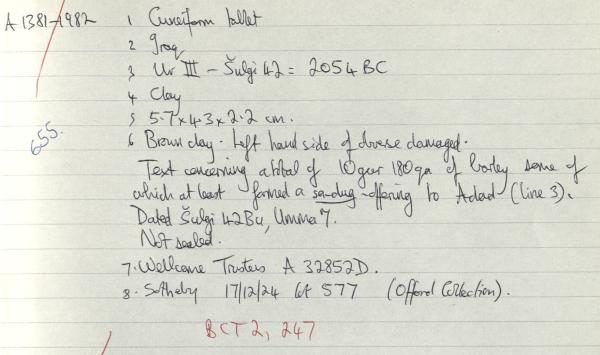 A 1381-1982
1 Cuneiform tablet
2 Iraq
3 Ur III - Šulgi 42 = 2054 BC
4 Clay
5 5.7 x 4.3 x 2.2 cm.
655.
6 Brown clay. Left hand side of obverse damaged.
Text concerning a total of 10 gur 180 qa of barley some of
which at least formed a sa-dug offering to Adad (line 3).
Dated Šulgi 42 Bu, Umma 7.
Not sealed.
7. Wellcome Trustees A 32852D.
8. Sotheby 17/12/24 lot 577 (Offord Collection).
BCT 2, 247